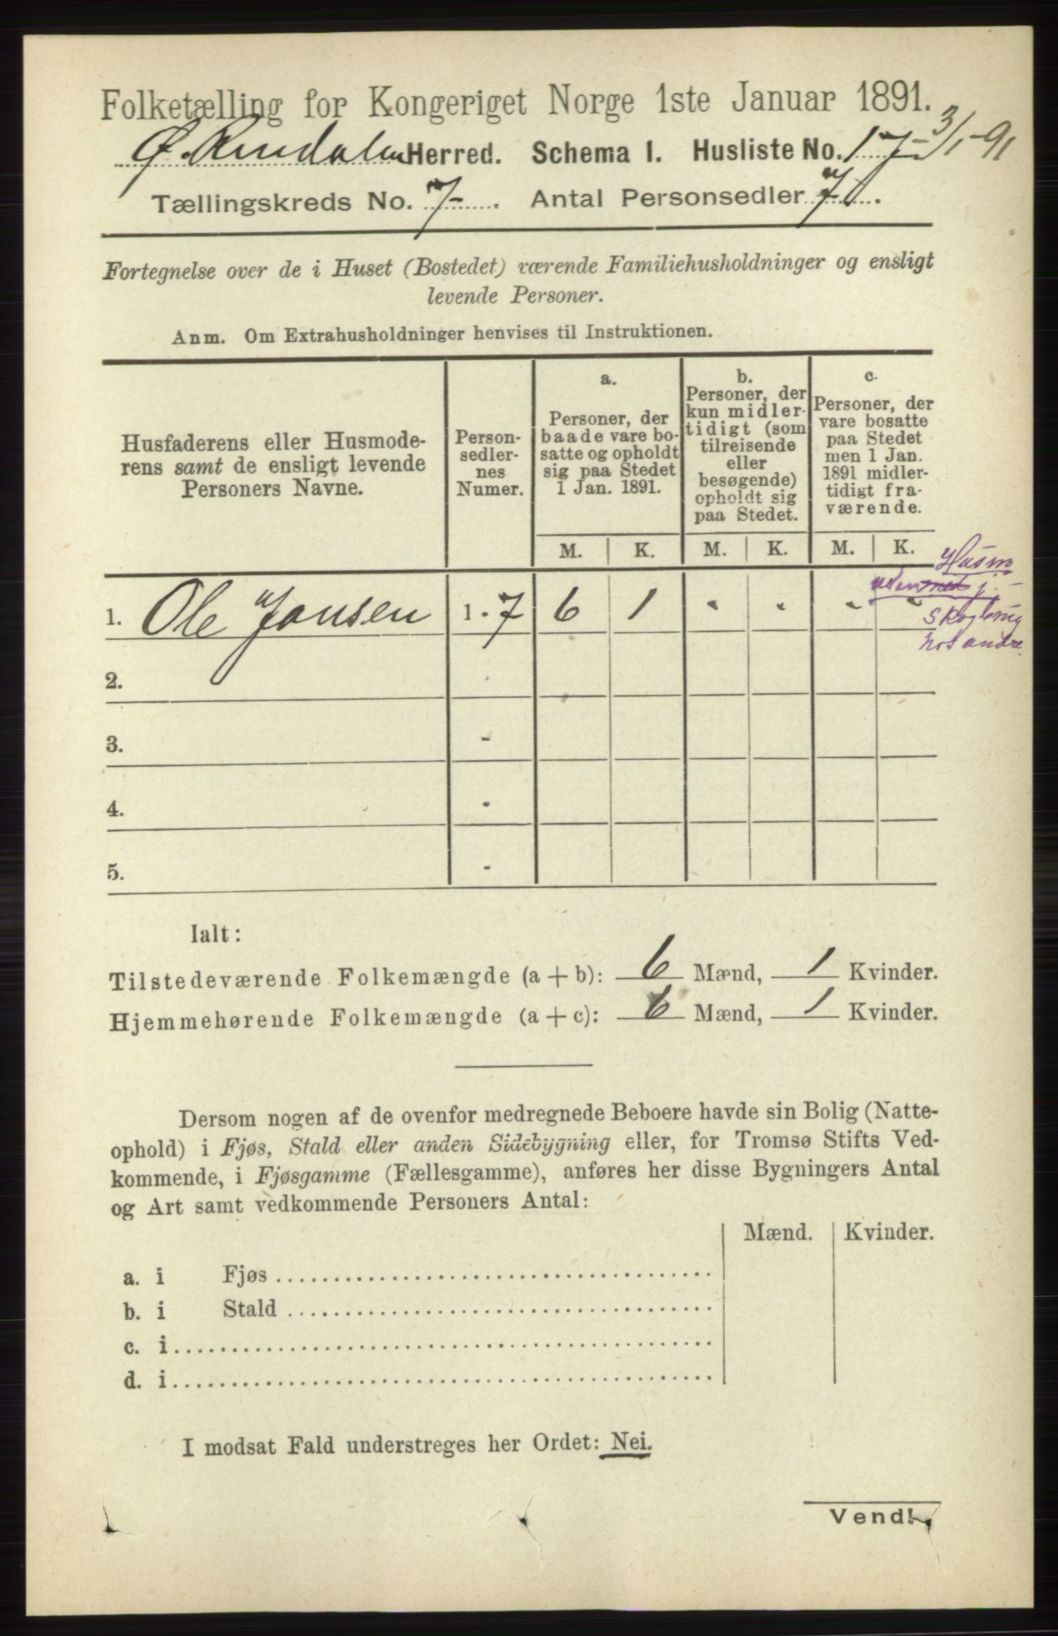 Folketælling for Kongeriget Norge 1ste Januar 1891.
Ø. Rendalen Herred. Schema I. Husliste No. 17 3/1-91
Tællingskreds No. 7. Antal Personsedler 7.
Fortegnelse over de i Huset (Bostedet) værende Familiehusholdninger og ensligt
levende Personer.
Anm. Om Extrahusholdninger henvises til Instruktionen.
Husfaderens eller Husmode-
rens samt de ensligt levende
Personers Navne.
Person-
sedler-
nes
Numer.
a.
Personer, der
baade vare bo-
satte og opholdt
sig paa Stedet
1 Jan. 1891.
b.
Personer, der
kun midler-
tidigt (som
tilreisende
eller
besøgende)
opholdt sig
paa Stedet.
c.
Personer, der
vare bosatte
paa Stedet
men 1 Jan.
1891 midler-
tidigt fra-
værende.
M. K. M. K. M. K.
Husm
uden med j.
Skogbrug
hos andre.
1. Ole Jansen 1-7 6 1 " " " "
2.
3. -
4. -
5. -
Ialt:
Tilstedeværende Folkemængde (a + b): 6 Mænd, 1 Kvinder.
Hjemmehørende Folkemængde (a + c): 6 Mænd, 1 Kvinder.
Dersom nogen af de ovenfor medregnede Beboere havde sin Bolig (Natte-
ophold) i Fjøs, Stald eller anden Sidebygning eller, for Tromsø Stifts Ved-
kommende, i Fjøsgamme (Fællesgamme), anføres her disse Bygningers Antal
og Art samt vedkommende Personers Antal:
Mænd. Kvinder.
a. i Fjøs
b. i Stald
c. i
d. i
I modsat Fald understreges her Ordet: Nei.
Vend!